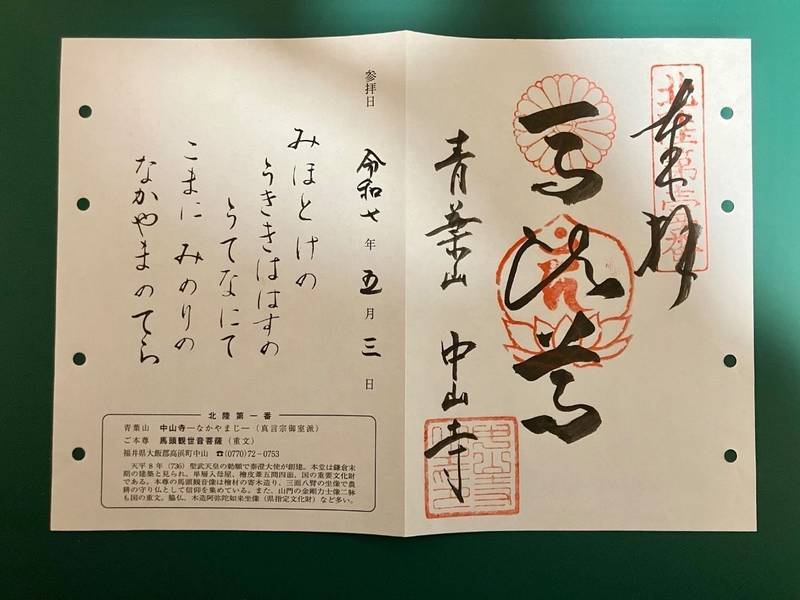 北陸第壹番
奉拝
馬頭尊
青葉山 中山寺
参拝日 令和七年五月三日
みほとけの
うききははすの
うてなにて
こまに みのりの
なかやまのてら
北陸第一番
青葉山 中山寺―なかやまじ―(真言宗御室派)
ご本尊 馬頭観世音菩薩(重文)
福井県大飯郡高浜町中山 ☎(0770)72-0753
天平8年(736)聖武天皇の勅願で泰澄大使が創建。本堂は鎌倉末
期の建築と見られ、単層入母屋、檜皮葺五間四面、国の重要文化財
である。本尊の馬頭観音像は檜材の寄木造り、三面八臂の坐像で農
耕の守り仏として信仰を集めている。また、山門の金剛力士像二躰
も国の重文。脇仏、木造阿弥陀如来坐像(県指定文化財)など多い。